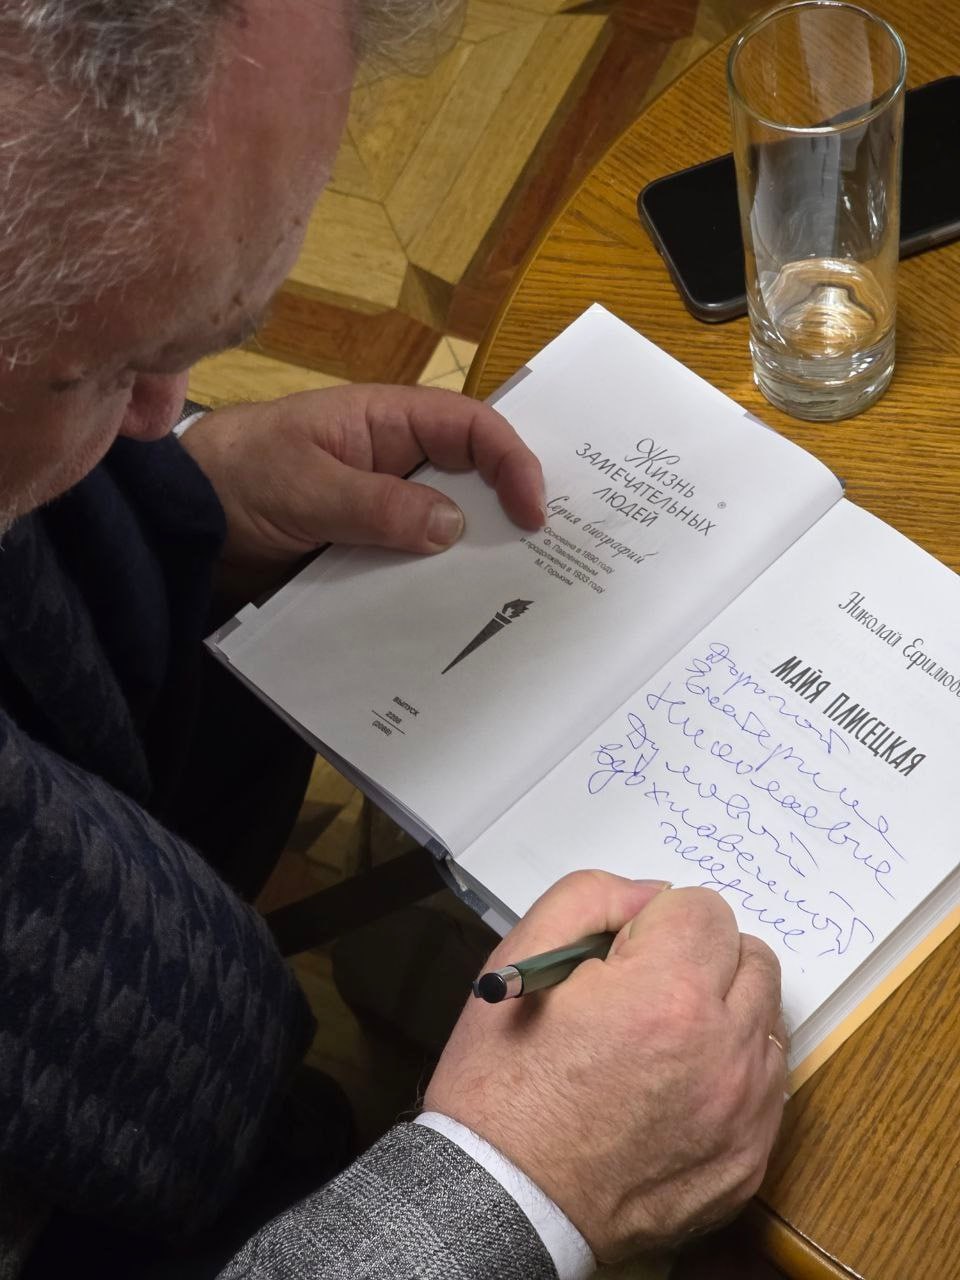 Жизнь
ЗАМЕЧАТЕЛЬНЫХ ®
ЛЮДЕЙ
Серия биографий
Основана в 1890 году
Ф. Павленковым
и продолжена в 1933 году
М. Горьким
ВЫПУСК
2288
(2088)
Николай Ефимови
МАЙЯ ПЛИСЕЦКАЯ
Дорогой
Екатерине
Николаевне
вдохновенной
женщине!